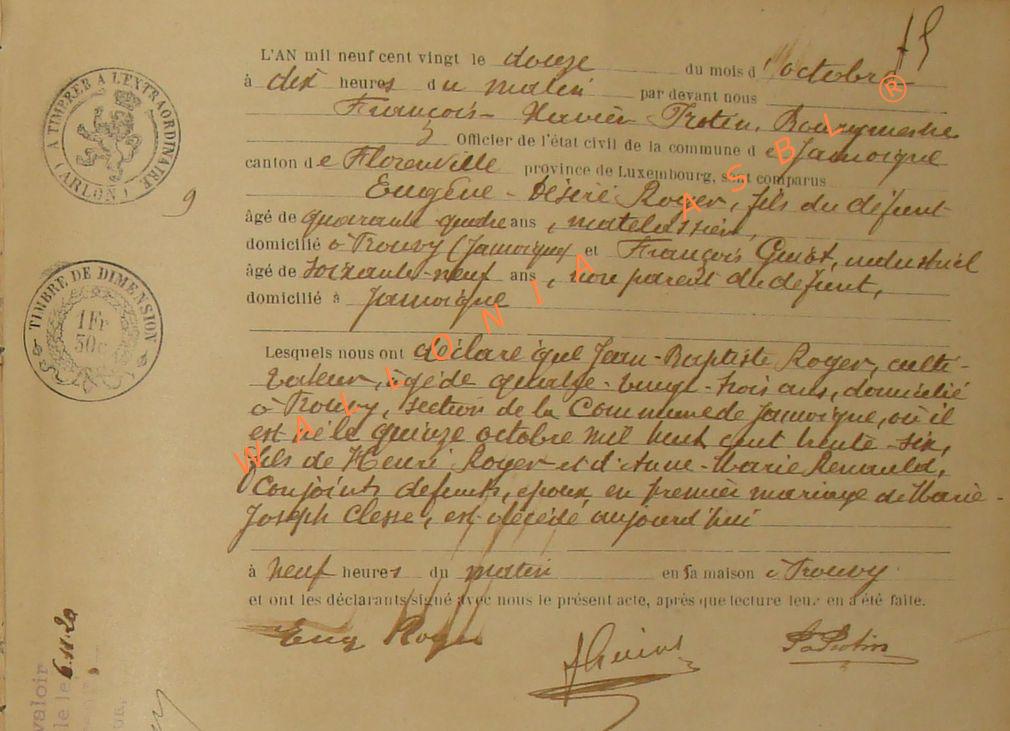 L'AN mil neuf cent vingt le douze du mois d'octobre
à dix heures du matin par devant nous
François-Xavier Protin, Bourgmestre
Officier de l'état civil de la commune de Jamoigne
canton de Florenville province de Luxembourg, sont comparus
Eugène-Désiré Roger, fils du défunt
âgé de quarante-quatre ans, matelassier,
domicilié à Prouvy (Jamoigne) et François Guiot, industriel
âgé de soixante-neuf ans, non parent du défunt,
domicilié à Jamoigne
Lesquels nous ont déclaré que Jean-Baptiste Roger, culti-
vateur, âgé de quatre-vingt-trois ans, domicilié
à Prouvy, section de la Commune de Jamoigne, où il
est né le quinze octobre mil huit cent trente-six,
fils de Henri Roger et d'Anne-Marie Renauld,
Conjoints défunts, époux en premier mariage de Marie-
Joseph Clesse, est décédé aujourd'hui
à neuf heures du matin en sa maison à Prouvy.
et ont les déclarants signé avec nous le présent acte, après que lecture leur en a été faite.
Eug Roger
FGuiot
Protin
A TIMBRER A L'EXTRAORDINAIRE
(ARLON)
9
TIMBRE DE DIMENSION
1 Fr
50c
valoir
le le 6.11.20
WALLONIA ASBL ®